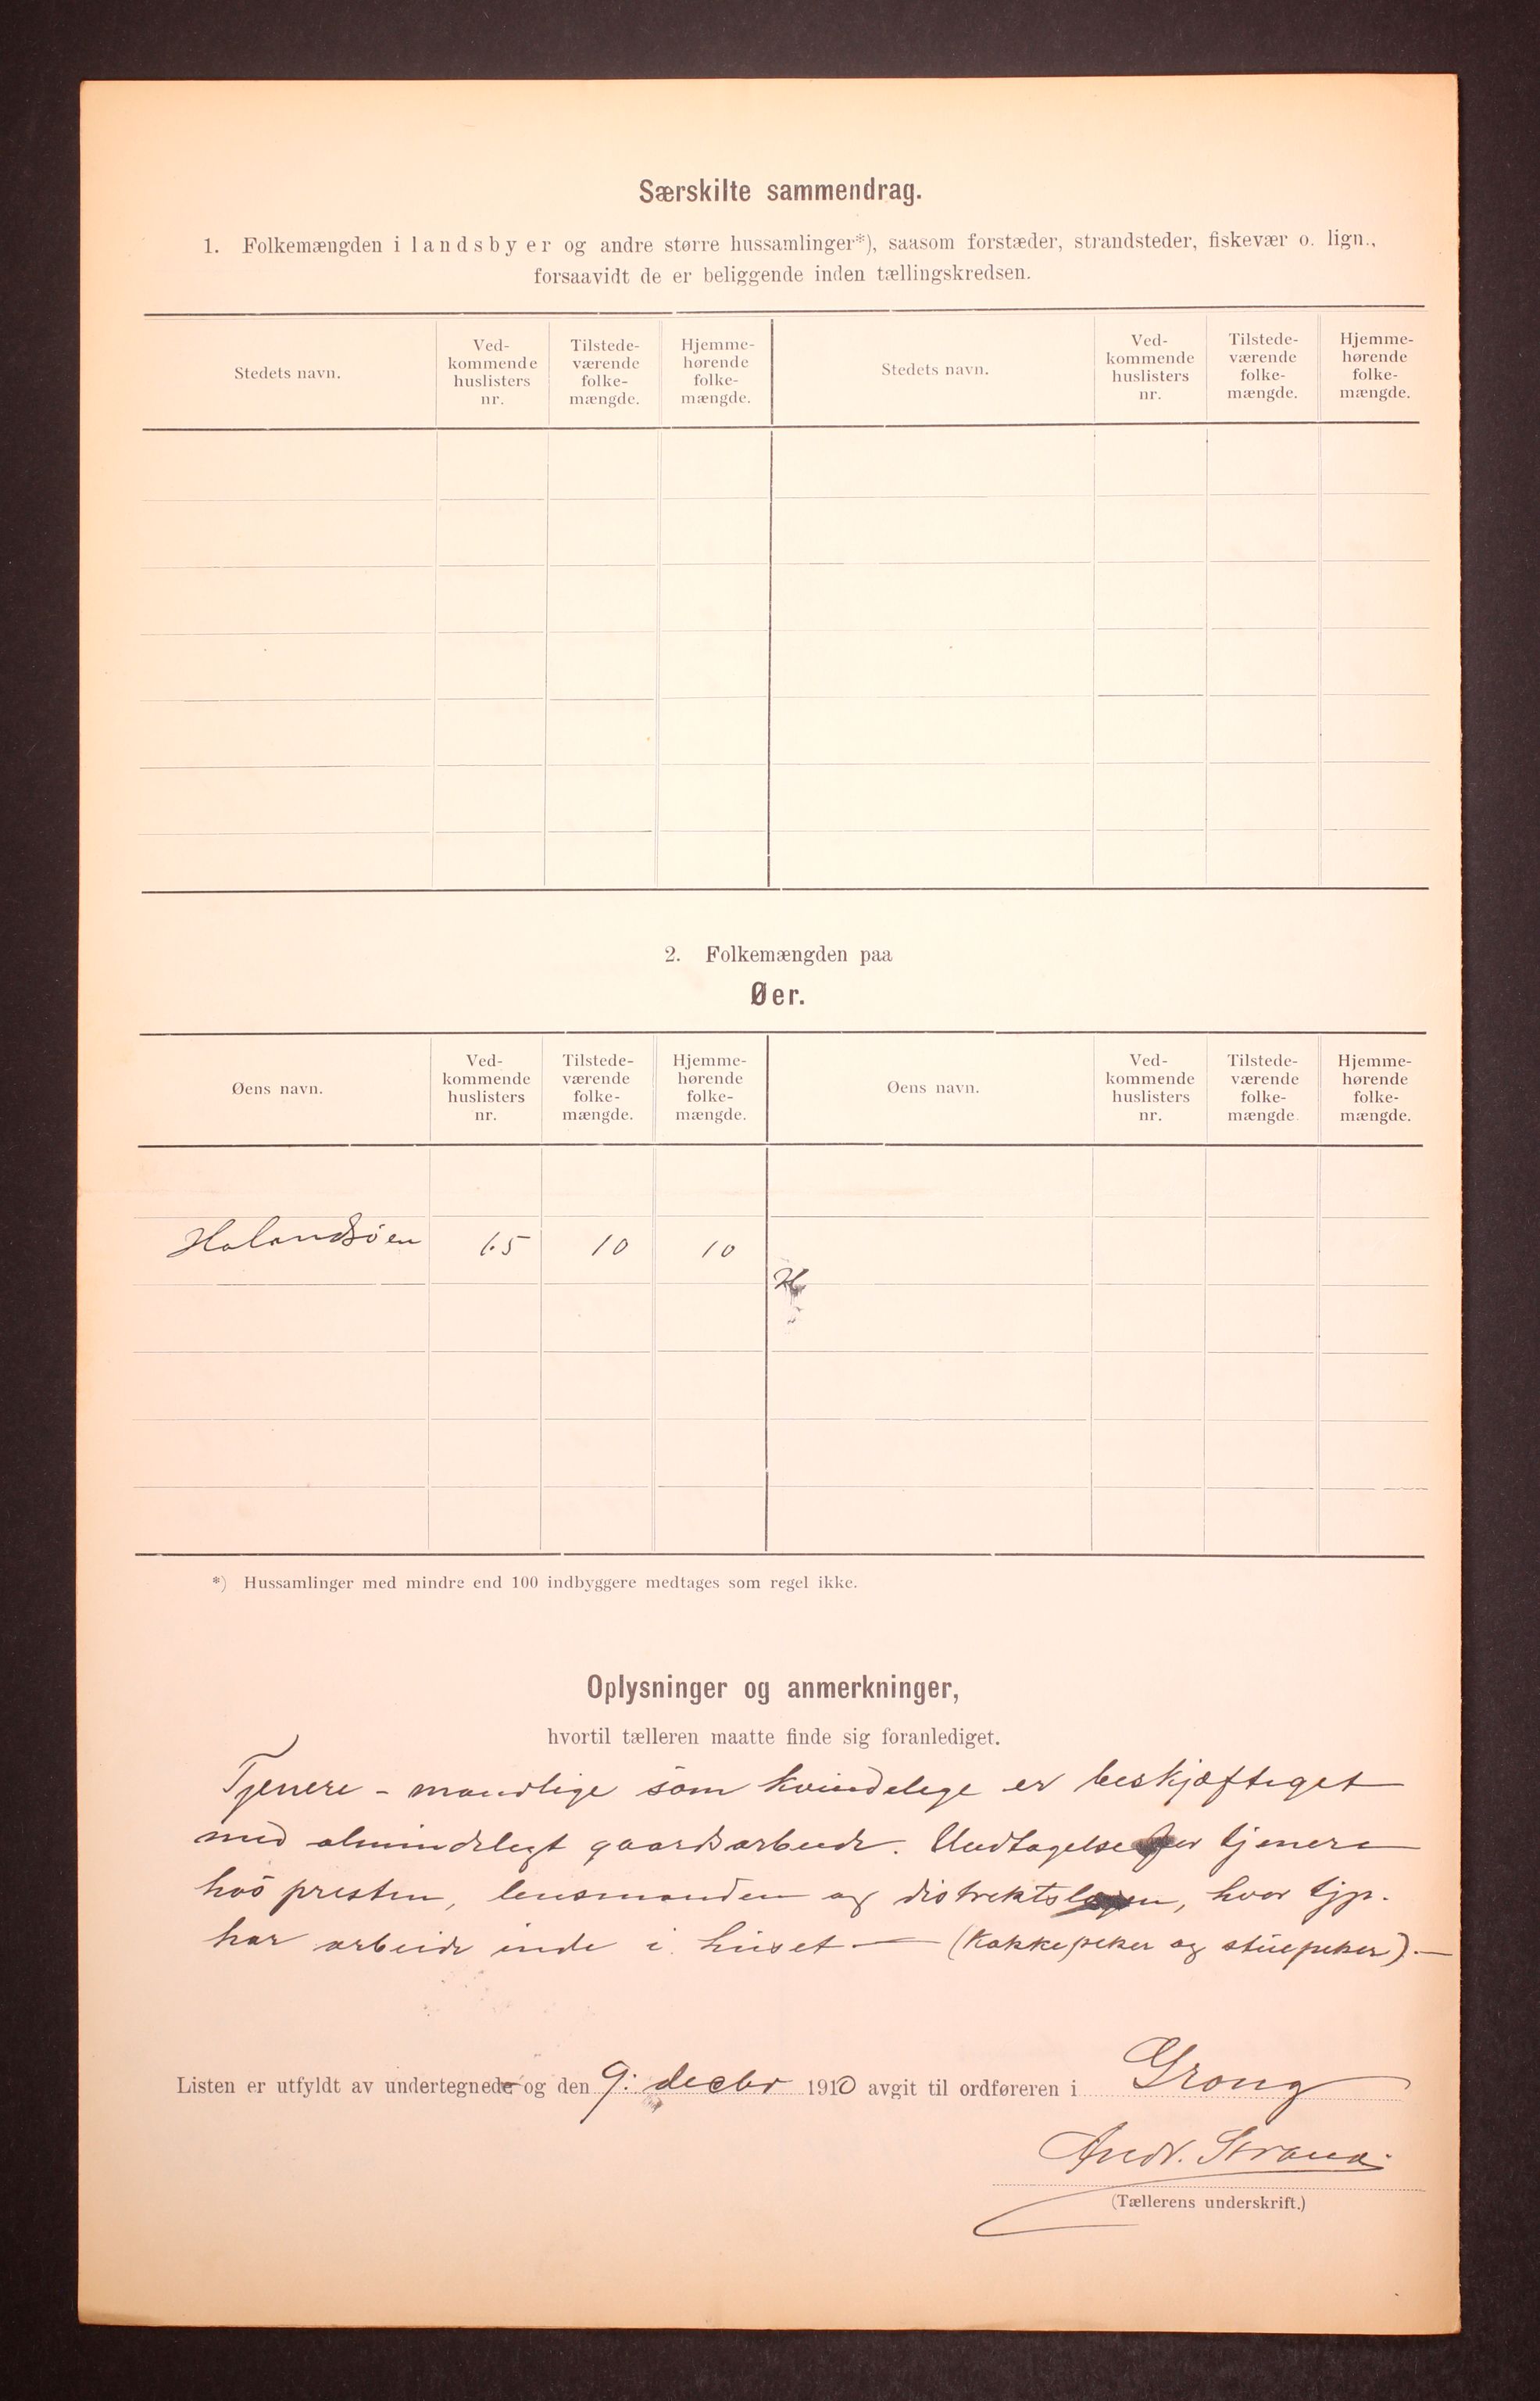 Særskilte sammendrag.
1. Folkemængden i landsbyer og andre større hussamlinger*), saasom forstæder, strandsteder, fiskevær o. lign.,
forsaavidt de er beliggende inden tællingskredsen.
Stedets navn. Ved-kommende huslisters nr. Tilstede-værende folke-mængde. Hjemme-hørende folke-mængde. Stedets navn. Ved-kommende huslisters nr. Tilstede-værende folke-mængde. Hjemme-hørende folke-mængde.
2. Folkemængden paa
Øer.
Øens navn. Ved-kommende huslisters nr. Tilstede-værende folke-mængde. Hjemme-hørende folke-mængde. Øens navn. Ved-kommende huslisters nr. Tilstede-værende folke-mængde. Hjemme-hørende folke-mængde.
Halandsöen 65 10 10
*) Hussamlinger med mindre end 100 indbyggere medtages som regel ikke.
Oplysninger og anmerkninger,
hvortil tælleren maatte finde sig foranlediget.
Tjenere - mandlige som kvindelige er beskjæftiget
med almindeligt gaardsarbeide. Undtagelse er tjenere
hos presten, lensmanden og distriktslægen, hvor tjp.
har arbeide inde i huset — (Kokkepiker og stuepiker). —
Listen er utfyldt av undertegnede og den 9. decbr 1910 avgit til ordføreren i Grong
Andr. Strand.
(Tællerens underskrift.)